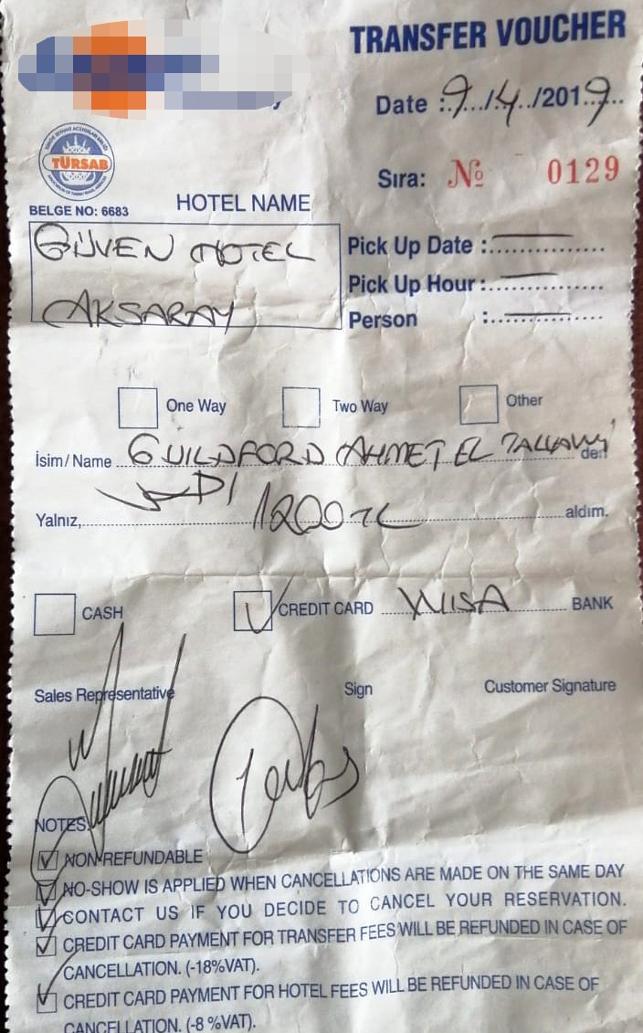 TRANSFER VOUCHER
Date : 9/4/2019
TÜRSAB
Sıra: № 0129
BELGE NO: 6683
HOTEL NAME
GÜVEN HOTEL
AKSARAY
Pick Up Date :
Pick Up Hour :
Person :
One Way
Two Way
Other
İsim / Name GUILDFORD AHMET EL den
Yalnız, 1200 TL aldım.
CASH
CREDIT CARD WISA BANK
Sales Representative
Sign
Customer Signature
NOTES:
NON REFUNDABLE
NO-SHOW IS APPLIED WHEN CANCELLATIONS ARE MADE ON THE SAME DAY
CONTACT US IF YOU DECIDE TO CANCEL YOUR RESERVATION.
CREDIT CARD PAYMENT FOR TRANSFER FEES WILL BE REFUNDED IN CASE OF
CANCELLATION. (-18%VAT).
CREDIT CARD PAYMENT FOR HOTEL FEES WILL BE REFUNDED IN CASE OF
CANCELLATION. (-8 %VAT).